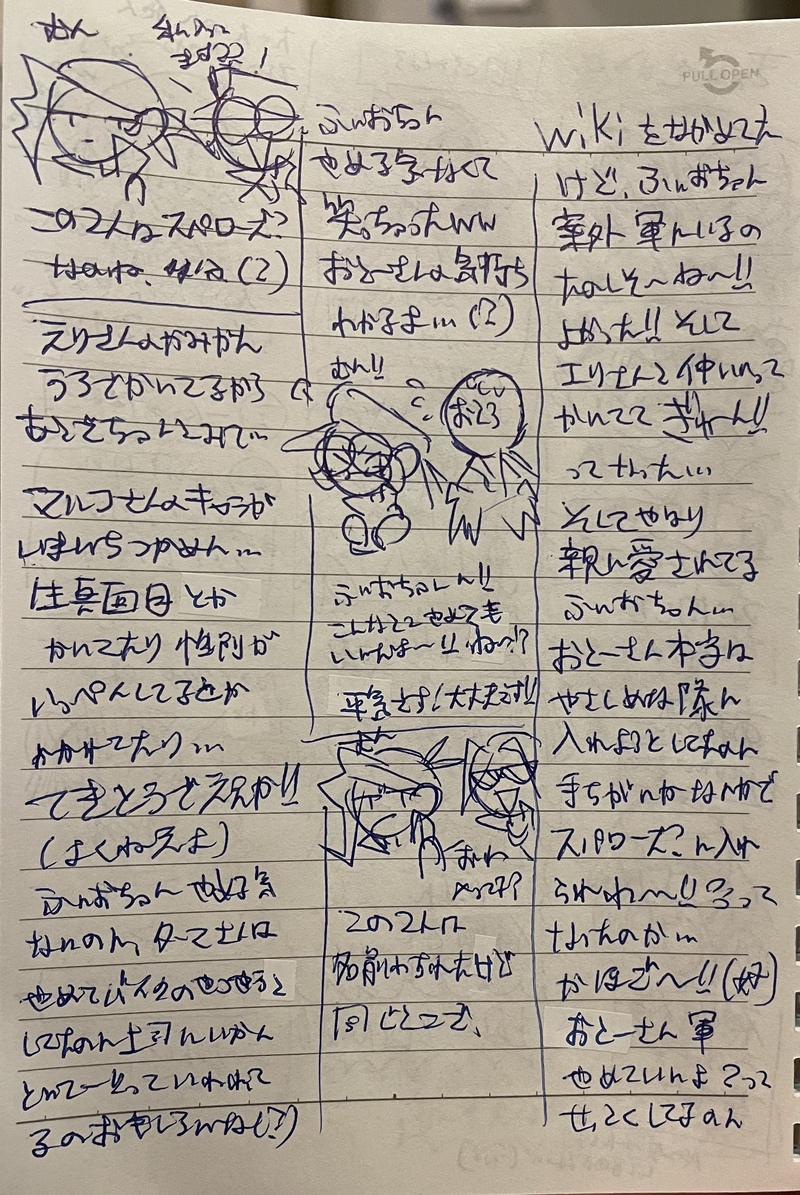 PULL OPEN
wikiをながめてた
けど、ふぃおちゃん
案外軍にいるの
たのしそ〜ね〜!!
よかった!! そして
エリさんと仲いいって
かいてて ぎゃーん!!
ってなった…
そしてやはり
親に愛されてる
ふぃおちゃん…
おとーさん本当は
やさしめな隊に
入れようとしてたのに
手ちがいかなんかで
スパローズ?に入れ
られれ〜!!って
なったのか…
かほご〜!!(好)
おとーさん 軍
やめていいよ?って
せっとくしてるのに
ふぃおちゃん
やめる気なくて
笑っちゃったww
おとーさんの気持ち
わかるよ…(?)
むん!!
おろ
ふぃおちゃーん!!
こんなとこやめても
いいんよ〜!! ね??
平気です!大丈夫です!!
むん
この2人は
名前わすれたけど
同じとこで、
むん
この2人はスパローズ?
なのね、(?)
えりさんのかみかん
うろでかいてるから
あとでちゃんとみて…
マルコさんのキャラが
いまいちつかめん…
生真面目とか
かいてたり 性別が
いっぺんしてることか
かかれてたり…
てきとうでええか!!
(よくねえよ)
ふぃおちゃん やめる気
ないのに、ターマさんは
やめてバイクのやつやろうと
してたのに上司にいかん
といてーっていわれて
るのおもしろいな(?)